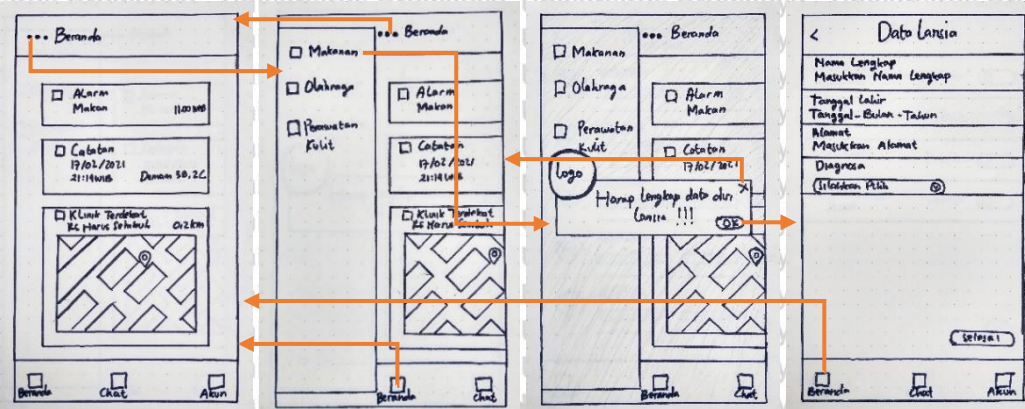 ... Beranda
Alarm
Makan 11.00 WIB
Catatan
17/02/2021
21:19 WIB Demam 38,2C
Klinik Terdekat
Rs Harus Sembuh 0,2km
Beranda Chat Akun
Makanan
Olahraga
Perawatan
Kulit
... Beranda
Alarm
Makan
Catatan
17/02/2021
21:19 WIB
Klinik Terdekat
Rs Harus Sembuh
Beranda Chat
Makanan
Olahraga
Perawatan
Kulit
... Beranda
Alarm
Makan
Catatan
17/02/2021
Logo
X
Harap lengkap data diri
lansia !!!
OK
Beranda Chat
< Data Lansia
Nama Lengkap
Masukkan Nama Lengkap
Tanggal Lahir
Tanggal-Bulan-Tahun
Alamat
Masukkan Alamat
Diagnosa
Silahkan Pilih
Selesai
Beranda Chat Akun